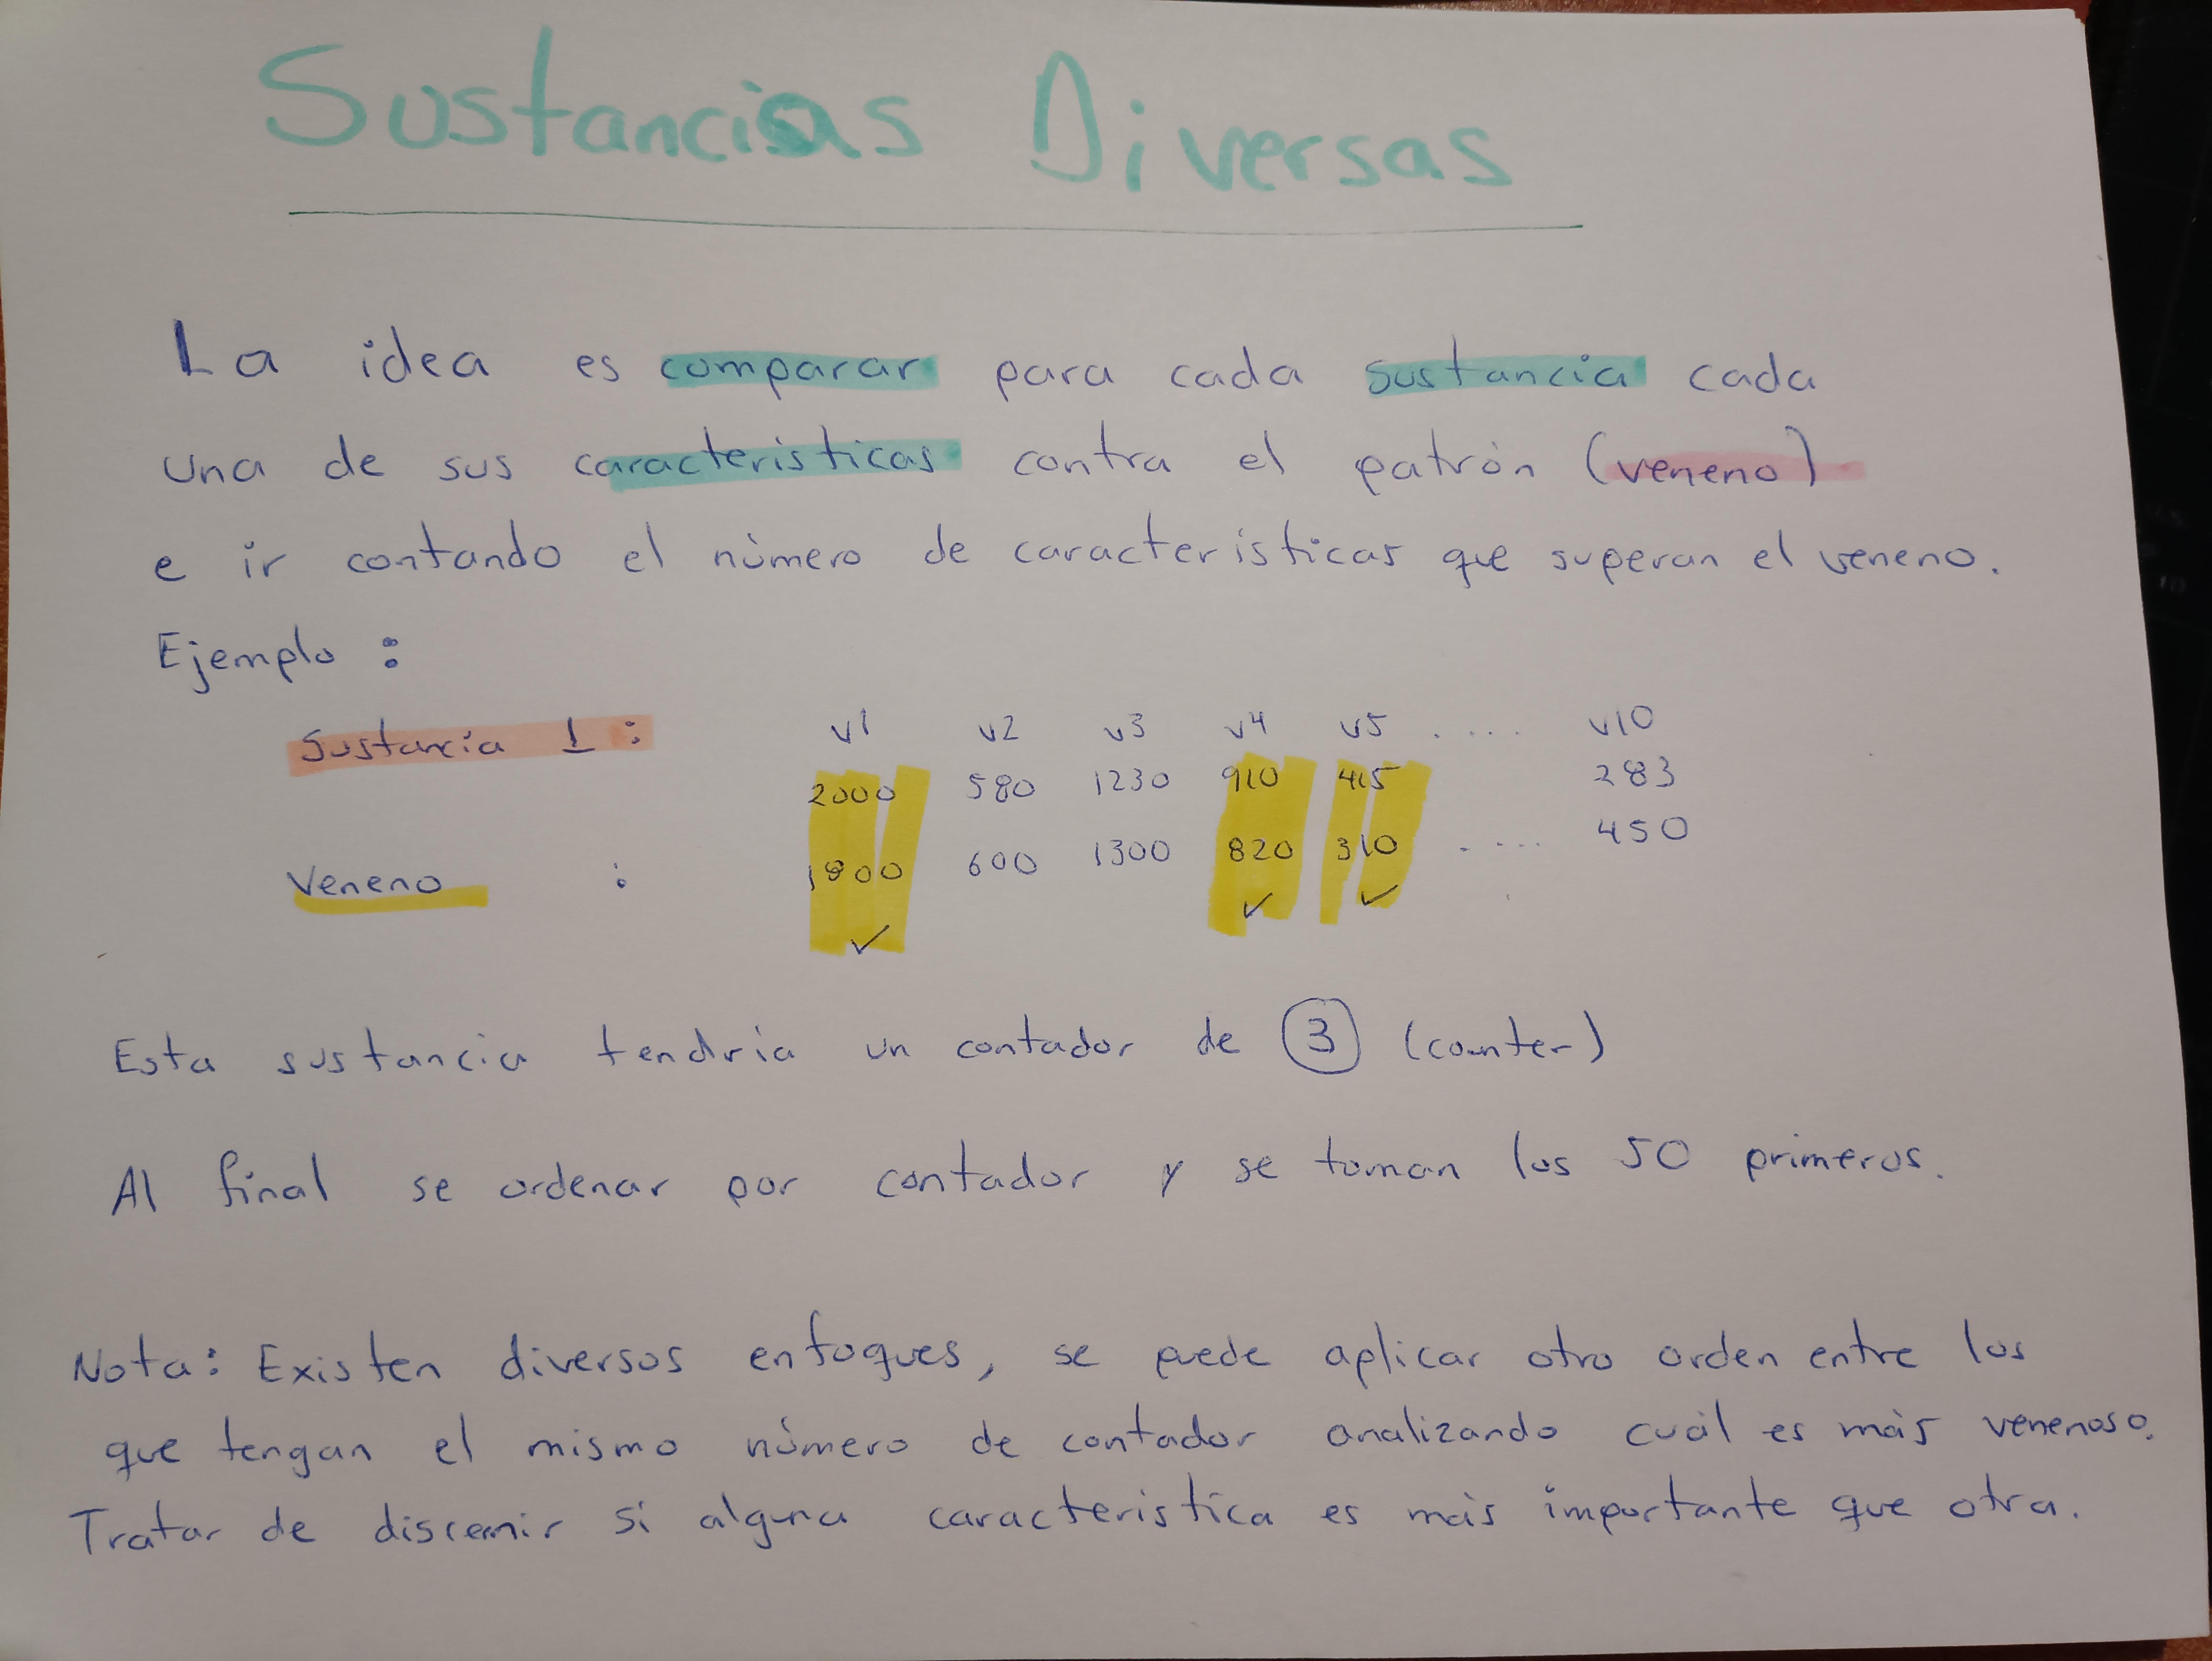 Sustancias Diversas
La idea es comparar para cada sustancia cada
una de sus caracteristicas contra el patrón (veneno)
e ir contando el número de caracteristicas que superan el veneno.
Ejemplo :
Sustancia 1 : v1 v2 v3 v4 v5 ..... v10
2000 580 1230 910 415 283
Veneno : 1800 600 1300 820 310 ..... 450
✓ ✓ ✓
Esta sustancia tendría un contador de 3 (counter)
Al final se ordenar por contador y se toman los 50 primeros.
Nota: Existen diversos enfoques, se puede aplicar otro orden entre los
que tengan el mismo número de contador analizando cuál es más venenoso.
Tratar de discernir si alguna caracteristica es más importante que otra.